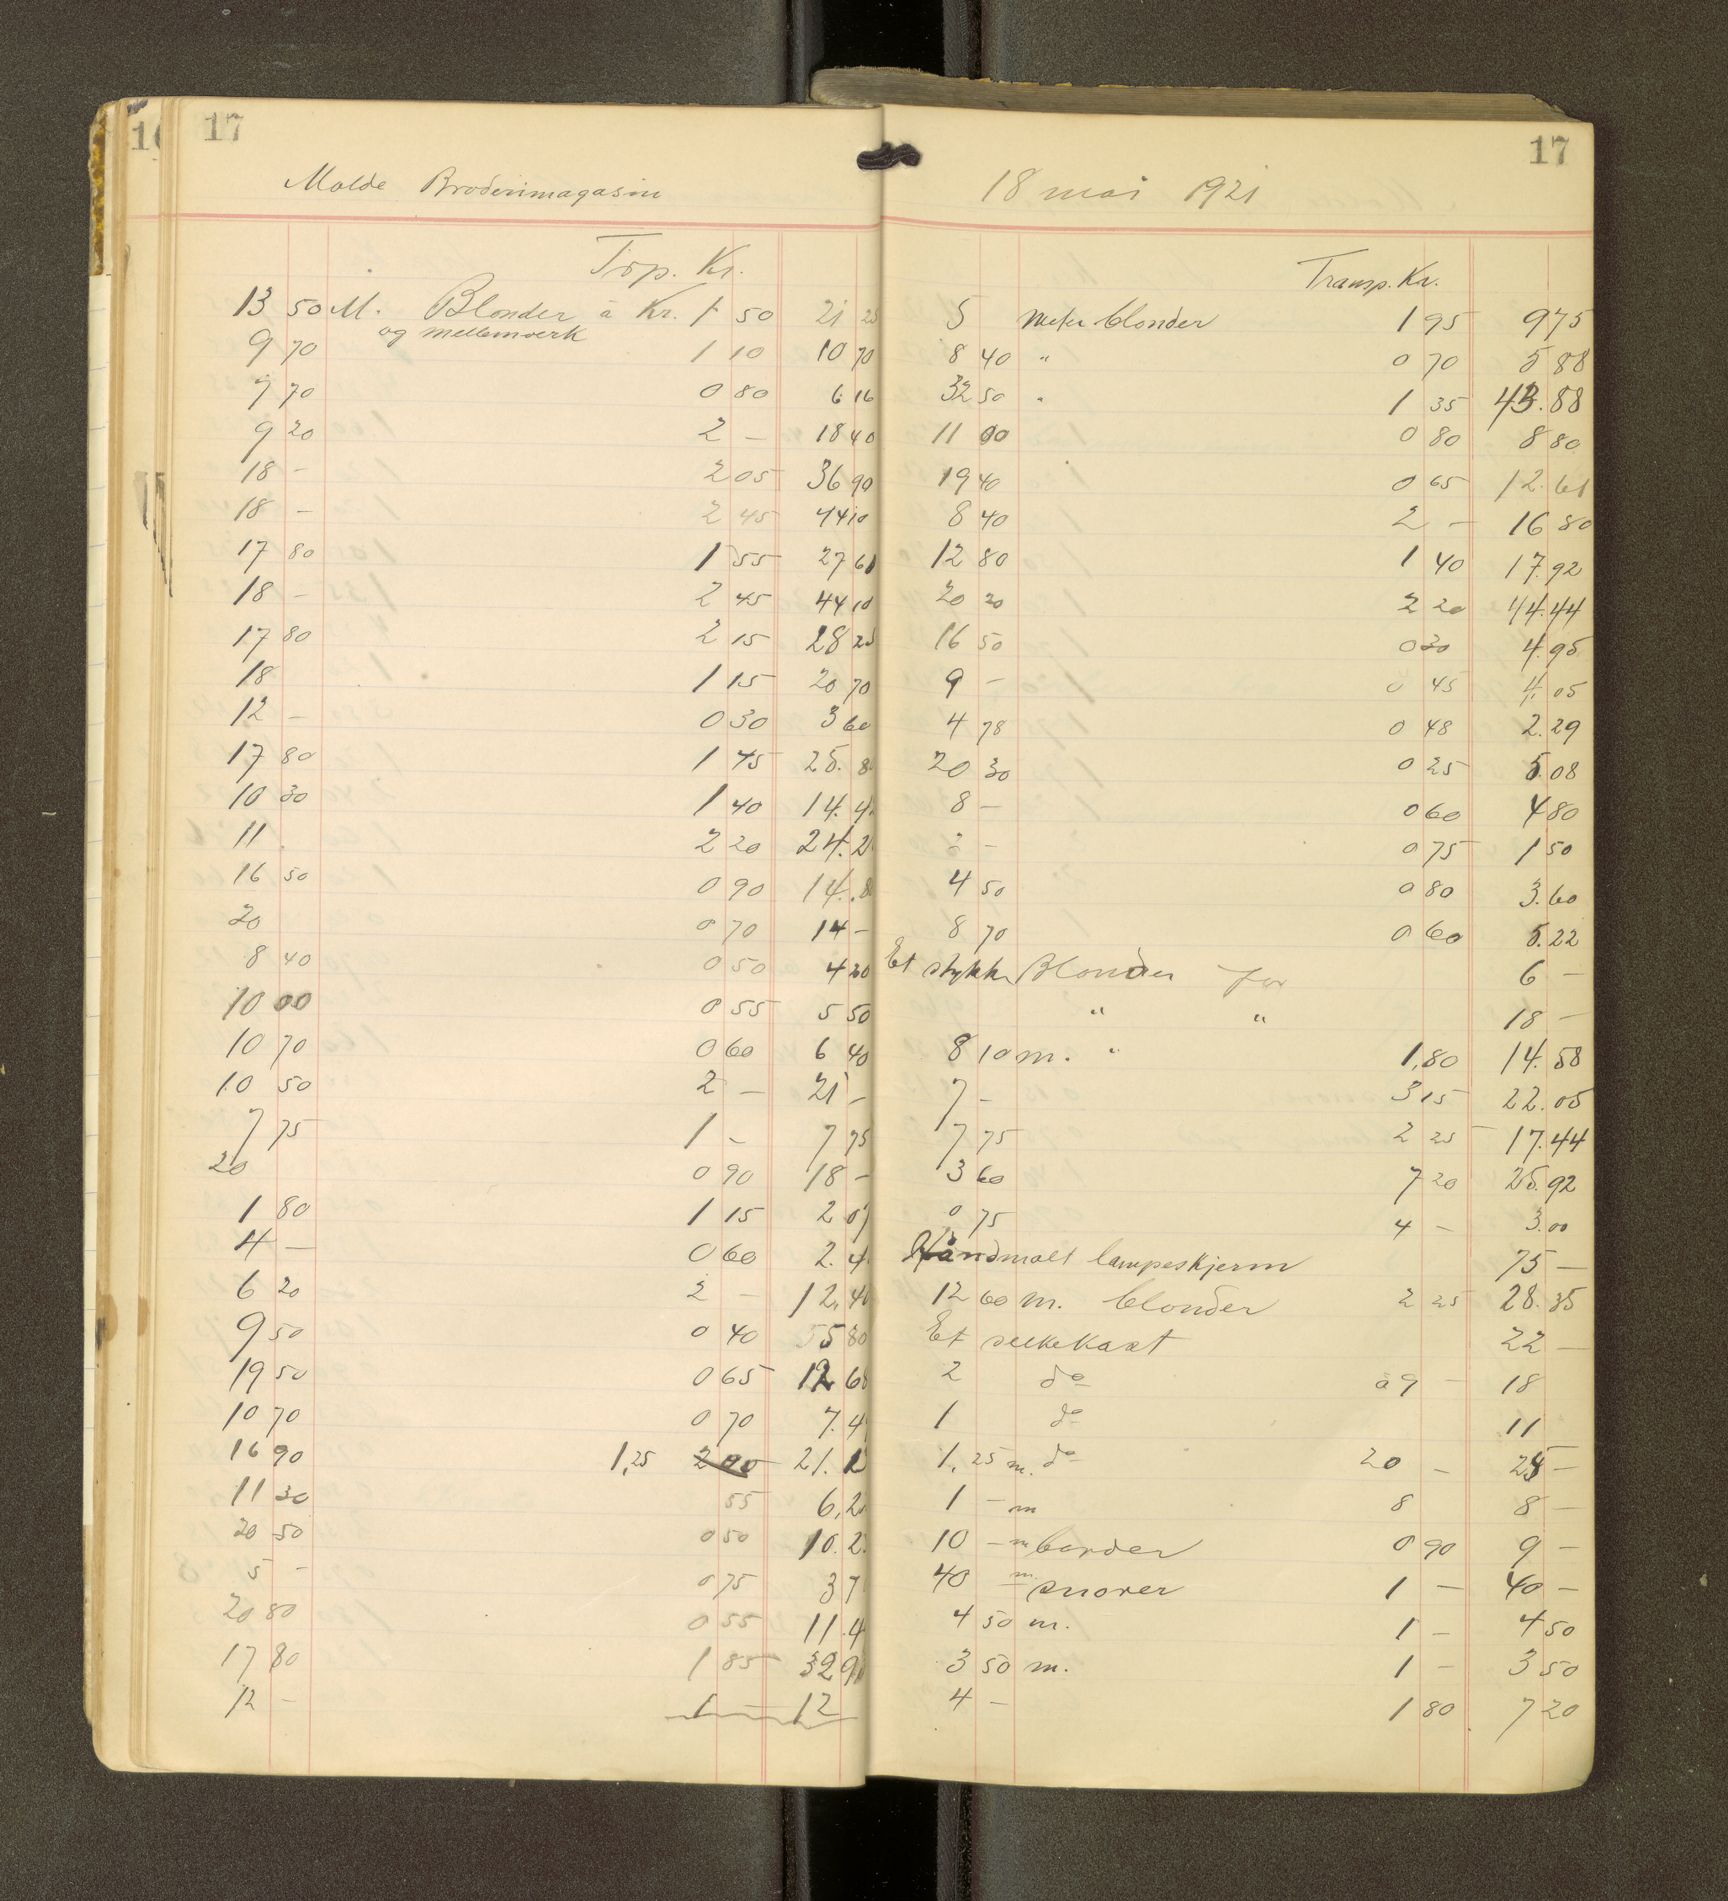 17
Molde Broderimagasin
Trsp. Kr.
13 50 M. Blonder à Kr. 1 50 21 25
og mellemverk
9 70 1 10 10 70
7 70 0 80 6 16
9 20 2 — 18 40
18 — 2 05 36 90
18 — 2 45 44 10
17 80 1 55 27 61
18 — 2 45 44 10
17 80 2 15 28 25
18 1 15 20 70
12 — 0 30 3 60
17 80 1 45 25. 8
10 30 1 40 14. 4
11 2 20 24. 2
16 50 0 90 14. 8
20 0 70 14 —
8 40 0 50 4 20
10 00 0 55 5 50
10 70 0 60 6 40
10 50 2 — 21 —
7 75 1 — 7 75
20 0 90 18 —
1 80 1 15 2 07
4 — 0 60 2. 4
6 20 2 — 12, 40
9 50 0 40 55 80
19 50 0 65 12 68
10 70 0 70 7. 4
16 90 1,25 2 00 21. 1
11 30 55 6, 2
20 50 0 50 10. 2
5 — 0 75 3 7
20 80 0 55 11. 4
17 80 1 85 32 9
12 — 1 — 12
17
18 mai 1921
Transp. Kr.
5 Meter blonder 1 95 9 75
8 40 " 0 70 5 88
32 50 " 1 35 43. 88
11 00 0 80 8 80
19 40 0 65 12. 61
8 40 2 — 16 80
12 80 1 40 17. 92
20 20 2 20 44. 44
16 50 0 30 4. 95
9 — 0 45 4. 05
4 78 0 48 2. 29
20 30 0 25 5. 08
8 — 0 60 4 80
2 — 0 75 1 50
4 50 0 80 3. 60
8 70 0 60 5. 22
Et stykke Blonder for 6 —
" " 18 —
8 10 m. " 1,80 14. 58
7 — 3 15 22. 05
7 75 2 25 17. 44
3 60 7 20 25. 92
0 75 4 — 3. 00
Håndmalt lampeskjerm 75 —
12 60 m. blonder 2 25 28. 35
Et silkekast 22 —
2 do à 9 — 18
1 do 11 —
1, 25 m. do 20 — 25 —
1 — m 8 8 —
10 — m border 0 90 9 —
40 — m. snorer 1 — 40 —
4 50 m. 1 — 4 50
3 50 m. 1 — 3 50
4 — 1 80 7 20